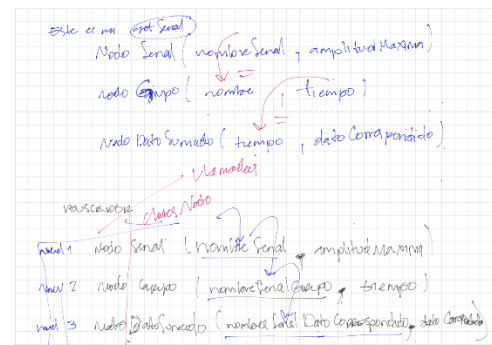 Este es una Señal
Nodo Senal ( nombreSenal , amplitudMaxima)
nodo Grupo ( nombre , tiempo )
Nodo DatoSumado ( tiempo , datoCorrespondido )
llamadas
clases Nodo
nivel 1 Nodo Senal ( nombre Senal , amplitudMaxima)
nivel 2 Nodo Grupo ( nombreSenalGrupo , tiempo )
nivel 3 Nodo DatoSumado ( nombreSenalDatoCorrespondido , dato Correspondido)